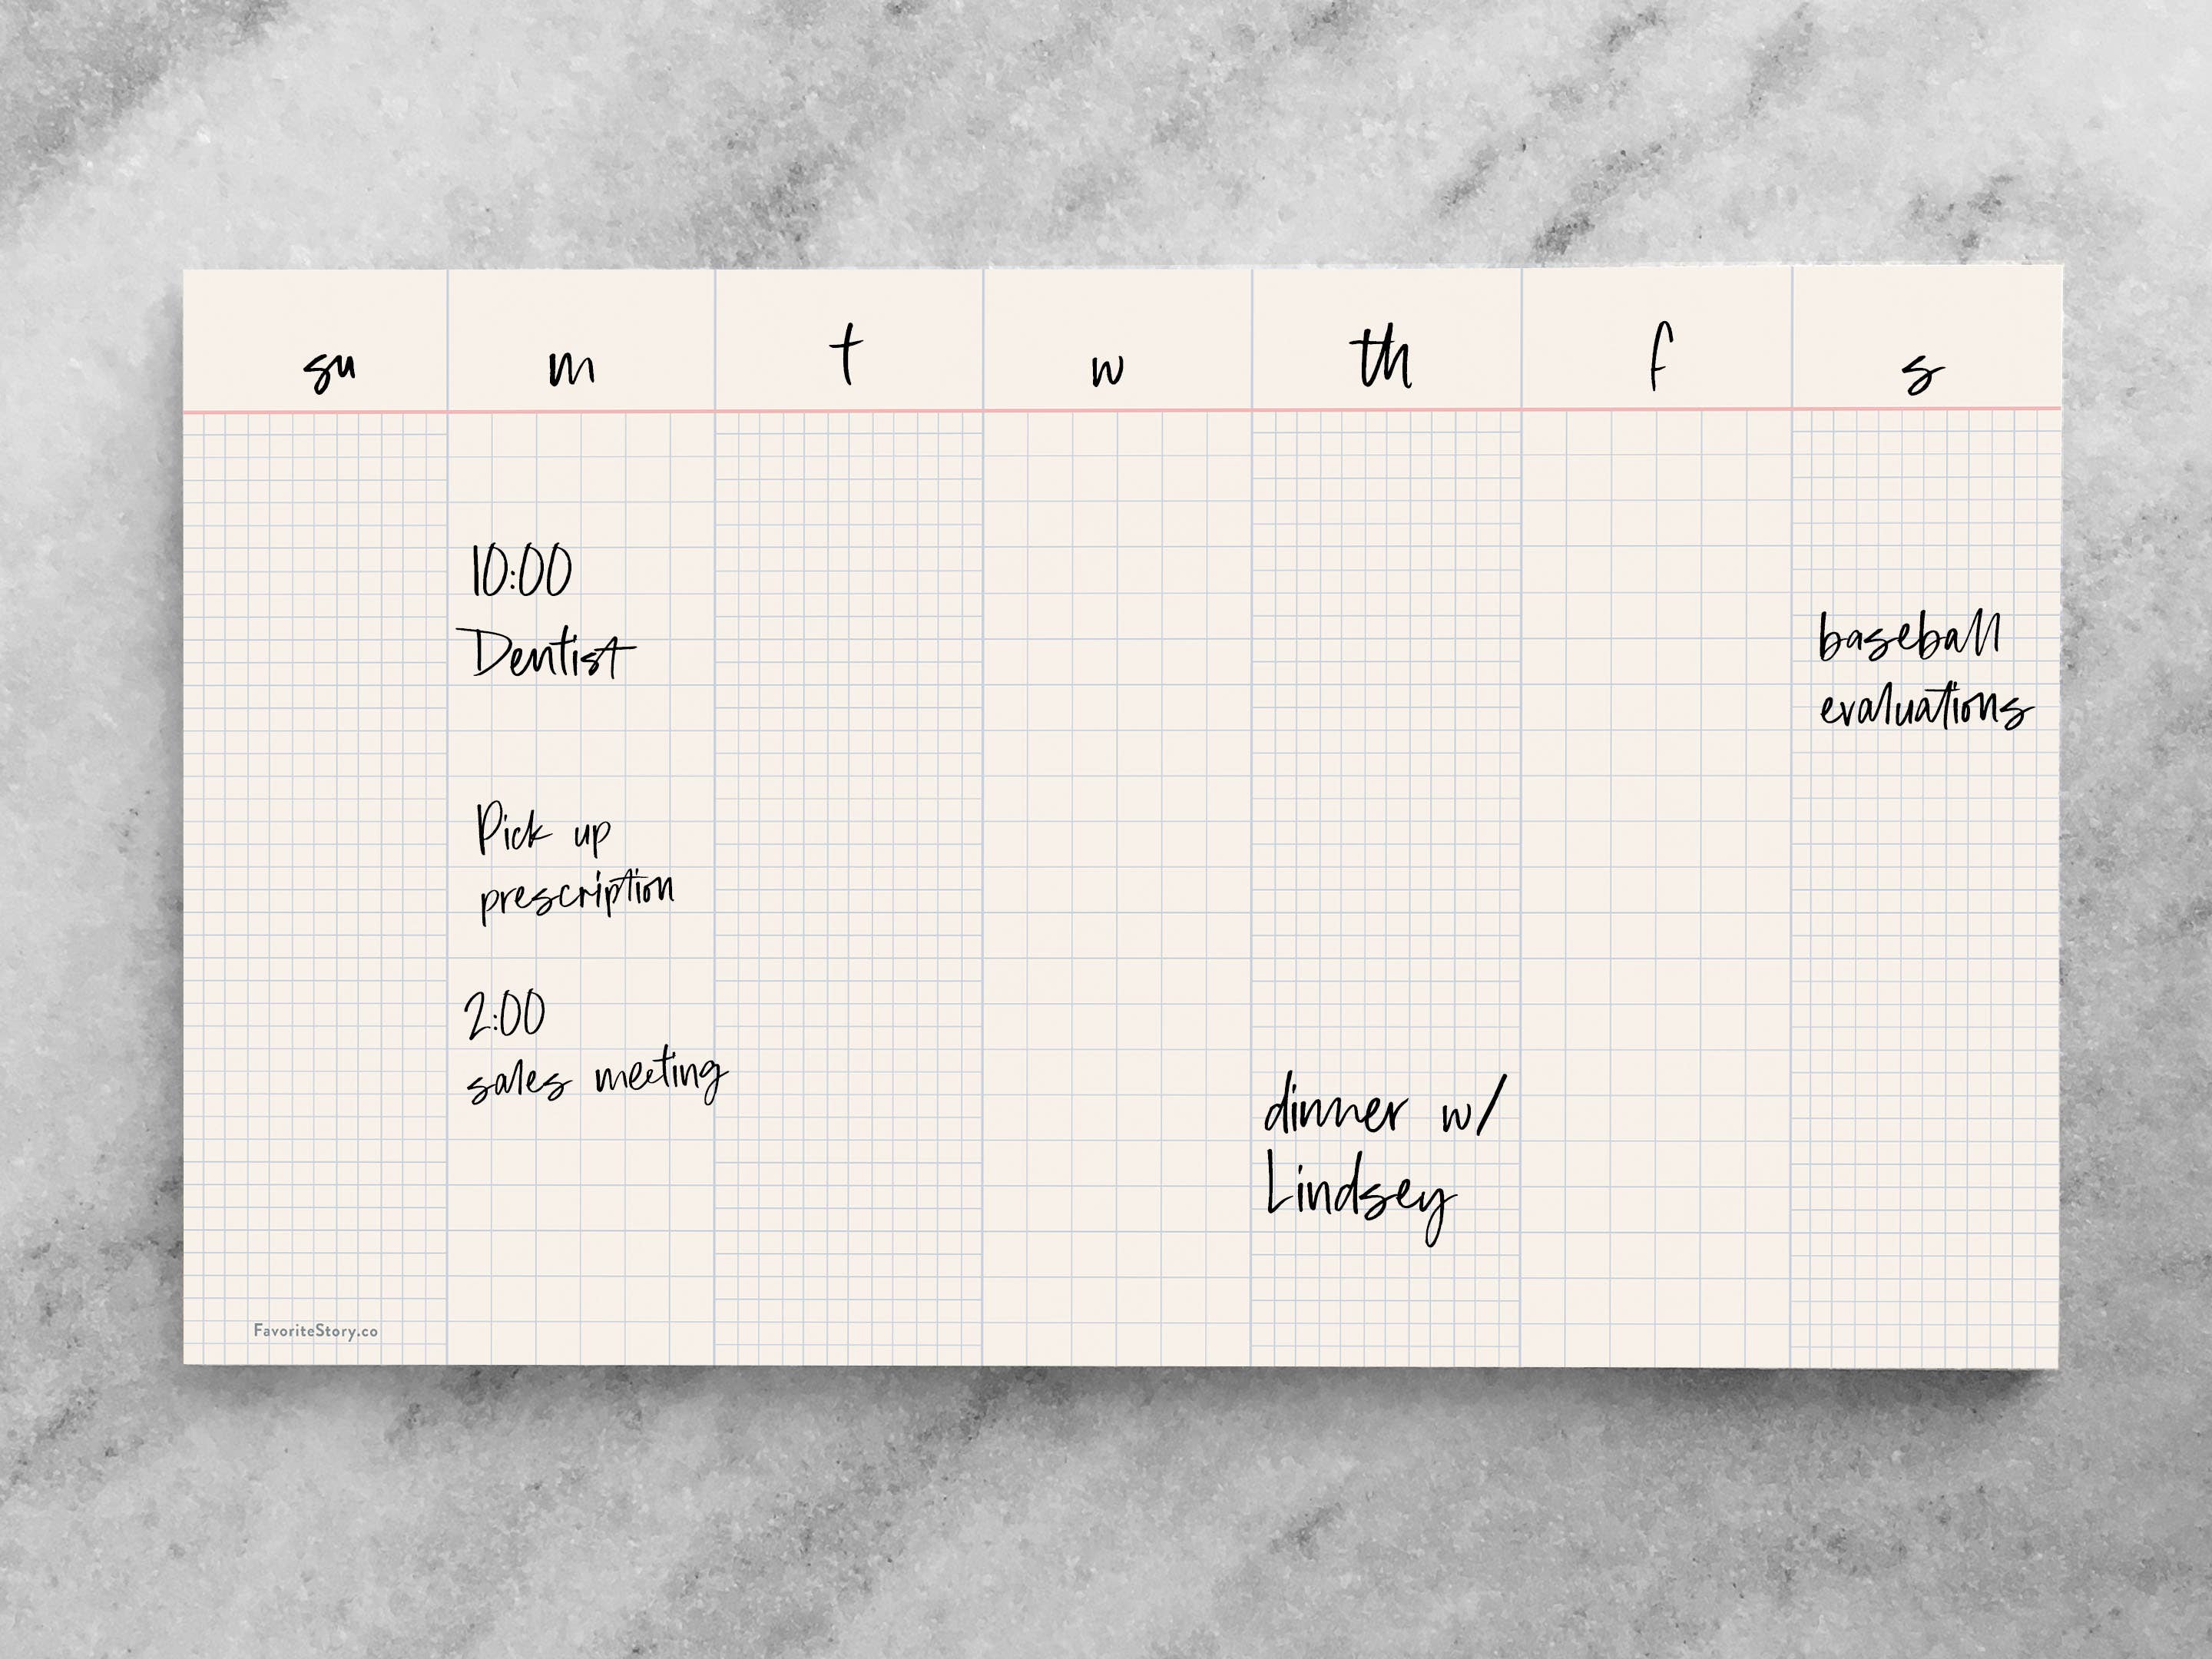 su
m
t
w
th
f
s
10:00
Dentist
Pick up
prescription
2:00
sales meeting
dinner w/
Lindsey
baseball
evaluations
FavoriteStory.co